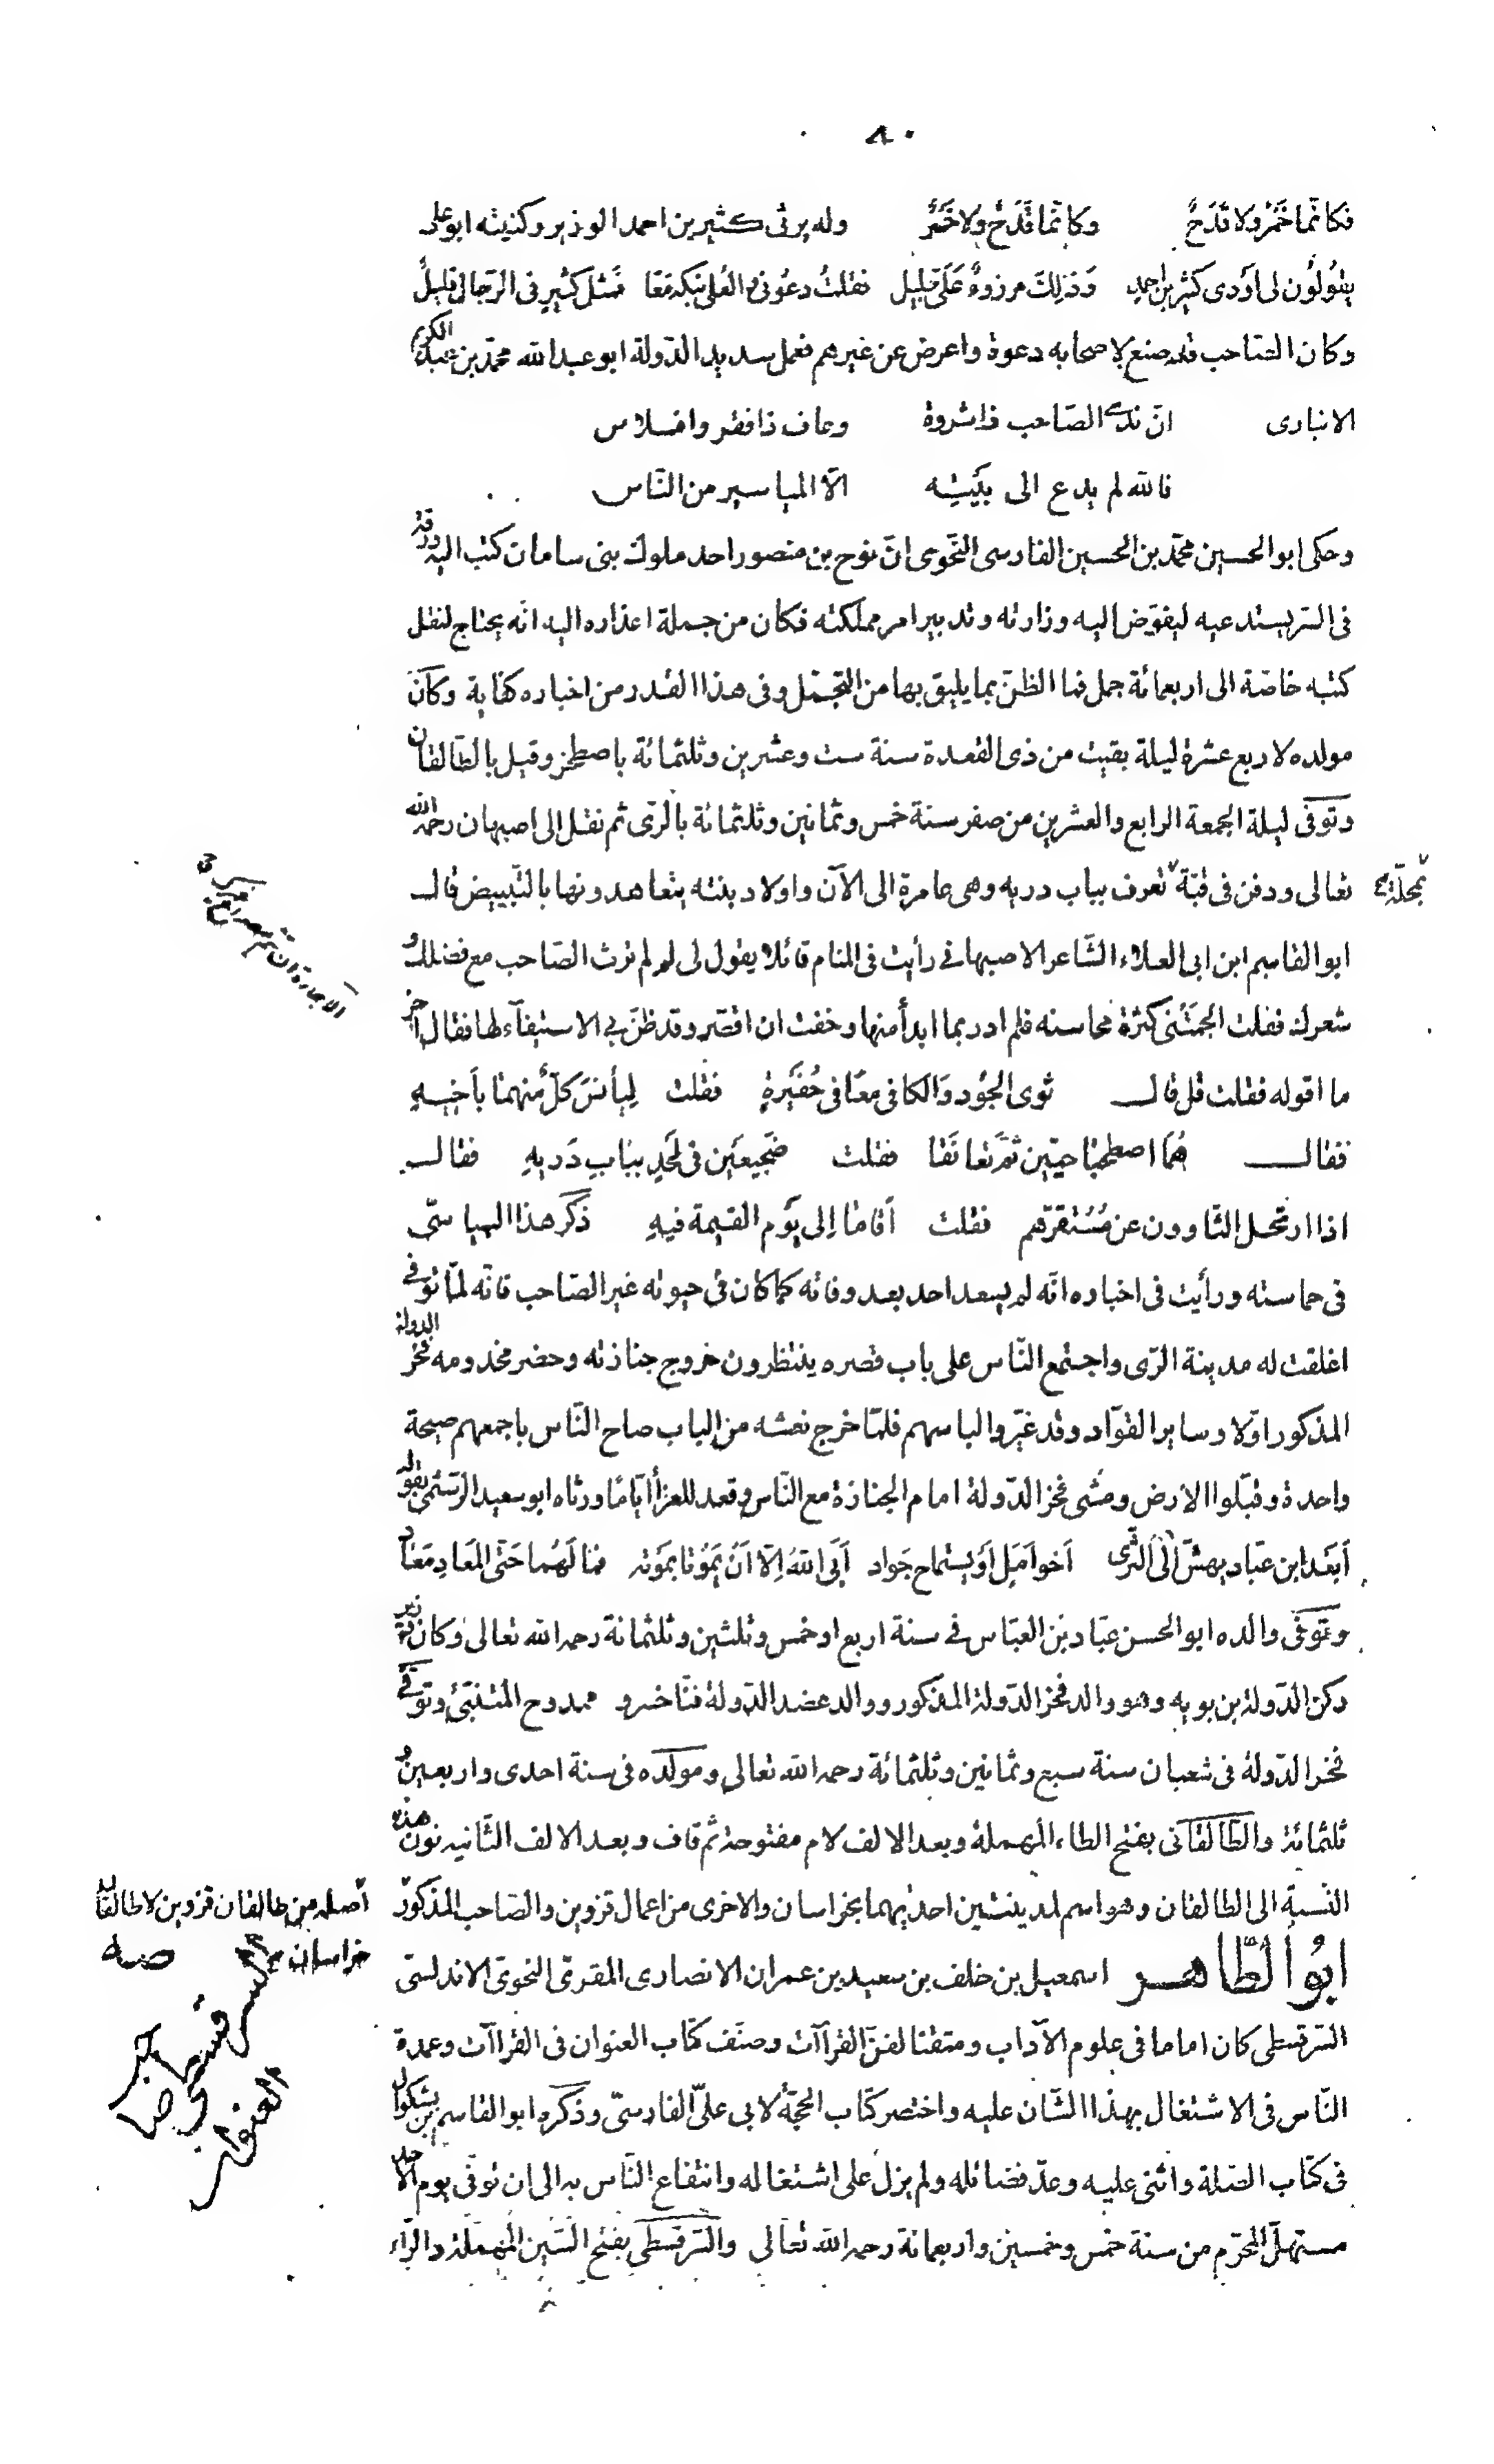 ٨٠
فكانما خمر ولا قدح وكانما قدح ولا خمر وله يرثى كثير بن احمد الوزير وكنيته ابو على
يقولون لى اودى كثير بن احمد وذلك مرزوء على جليل فقلت دعونى والعلى نبكه معا فمثل كثير فى الرجال قليل
وكان الصاحب قد صنع لاصحابه دعوة واعرض عن غيرهم فعمل سديد الدولة ابو عبد الله محمد بن عبد الكريم
الانبارى انّ ندى الصاحب ذا ثروة وعاف ذا فقر وافلاس
فالله لم يدع الى بيته الّا المياسير من الناس
وحكى ابو الحسين محمد بن الحسين الفارسى النحوى انّ نوح بن منصور احد ملوك بنى سامان كتب اليه ورقة
فى السّر يستدعيه ليفوّض اليه وزارته وتدبير امر مملكته فكان من جملة اعذاره اليه انّه يحتاج لنقل
كتبه خاصّة الى اربعمائة جمل فما الظنّ بما يليق بها من التجمّل وفى هذا القدر من اخباره كفاية وكان
مولده لاربع عشرة ليلة بقيت من ذى القعدة سنة ست وعشرين وثلثمائة باصطخر وقيل بالطالقان
وتوفى ليلة الجمعة الرابع والعشرين من صفر سنة خمس وثمانين وثلثمائة بالرّى ثم نقل الى اصبهان رحمه الله
تعالى ودفن فى قبّة تعرف بباب دريه وهى عامرة الى الآن واولاد بنته يتعاهدونها بالتبييض قال
بمحلّة
ابو القاسم ابن ابى العلاء الشاعر الاصبهانى رأيت فى المنام قائلا يقول لى لم لم ترث الصاحب مع فضلك و
شعرك فقلت الجمتنى كثرة محاسنه فلم ادر بما ابدأ منها وخفت ان اقصّر وقد ظنّ بى الاستيفاء لها فقال اجز
ما اقوله فقلت قل قال ثوى الجود والكافى معا فى حفيرة فقلت ليأنس كلّ منهما باخيه
فقال هما اصطحبا حيّين ثمّ تعانقا فقلت ضجيعين فى لحد بباب دريه فقال
اذا ارتحل الثاوون عن مستقرهم فقلت اقاما الى يوم القيمة فيه ذكر هذا البياسى
فى حماسته ورأيت فى اخباره انّه لم يسعد احد بعد وفاته كما كان فى حيوته غير الصاحب فانّه لمّا توفى
اغلقت له مدينة الرّى واجتمع النّاس على باب قصره ينتظرون خروج جنازته وحضر مخدومه فخر الدولة
المذكور اوّلا وساير القوّاد وقد غيّروا لباسهم فلمّا خرج نعشه من الباب صاح النّاس باجمعهم صيحة
واحدة وقبّلوا الارض ومشى فخر الدّولة امام الجنازة مع النّاس وقعد للعزأ ايّاما ورثاه ابو سعيد الرستمى بقوله
أبعد ابن عبّاد يهشّ الى السّرى اخو امل او يستماح جواد ابى الله الّا ان يموتا بموته فما لهما حتى المعاد معاد
وتوفى والده ابو الحسن عبّاد بن العبّاس فى سنة اربع او خمس وثلثين وثلثمائة رحمه الله تعالى وكان وزير
ركن الدّولة بن بويه وهو والد فخر الدّولة المذكور ووالد عضد الدّولة فنّاخسرو ممدوح المتنبّى وتوفى
فخر الدّولة فى شعبان سنة سبع وثمانين وثلثمائة رحمه الله تعالى ومولده فى سنة احدى واربعين و
ثلثمائة والطّالقانى بفتح الطاء المهملة وبعد الالف لام مفتوحة ثم قاف وبعد الالف الثانيه نون هذه
النسبة الى الطالقان وهو اسم لمدينتين احديهما بخراسان والاخرى من اعمال قزوين والصاحب المذكور
اصله من طالقان قزوين لا طالقان
خراسان صه
ابو الطّاهر اسمعيل بن خلف بن سعيد بن عمران الانصارى المقرى النحوى الاندلسى
السرقسطى كان اماما فى علوم الآداب ومتقنا لفنّ القراآت وصنّف كتاب العنوان فى القراآت وعمدة
النّاس فى الاشتغال بهذا الشّان عليه واختصر كتاب الحجّة لابى علىّ الفارسىّ وذكره ابو القاسم بن بشكوال
فى كتاب الصلة واثنى عليه وعدّ فضائله ولم يزل على اشتغاله وانتفاع النّاس به الى ان توفى يوم الاحد
مستهلّ المحرّم من سنة خمس وخمسين واربعمائة رحمه الله تعالى والسّرقسطى بفتح السّين المهملة والراء
السرقسطى صاحب
العنوان